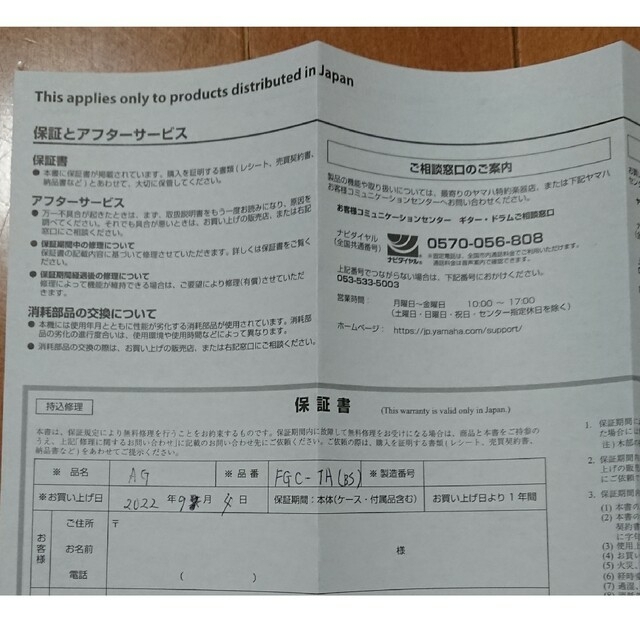 This applies only to products distributed in Japan
保証とアフターサービス
保証書
● 本書に保証書が掲載されています。購入を証明する書類(レシート、売買契約書、
納品書など)とあわせて、大切に保管してください。
アフターサービス
● 万一不具合が起きたときは、まず、取扱説明書をもう一度お読みになり、原因を
調べてください。それでも具合が悪いときは、お買い上げの販売店、または右記
窓口にご相談ください。
● 保証期間中の修理について
保証書の記載内容に基づいて修理させていただきます。詳しくは保証書をご覧く
ださい。
● 保証期間経過後の修理について
修理によって機能が維持できる場合は、ご要望により修理(有償)させていただ
きます。
消耗部品の交換について
● 本機には使用年月とともに性能が劣化する消耗部品が使用されています。消耗部
品の劣化の進行度合いは、使用環境や使用時間などによって異なります。
● 消耗部品の交換の際は、お買い上げの販売店、または右記窓口にご相談ください。
ご相談窓口のご案内
製品の機能や取り扱いについては、最寄りのヤマハ特約楽器店、または下記ヤマハ
お客様コミュニケーションセンターへお問い合わせください。
お客様コミュニケーションセンター ギター・ドラムご相談窓口
ナビダイヤル
(全国共通番号)
ナビダイヤル®
0570-056-808
※固定電話は、全国市内通話料金でご利用いただけます。
通話料金は音声案内で確認できます。
上記番号でつながらない場合は、下記番号におかけください。
053-533-5003
営業時間: 月曜日〜金曜日 10:00 〜 17:00
(土曜日・日曜日・祝日・センター指定休日を除く)
ホームページ: https://jp.yamaha.com/support/
持込修理
保証書
(This warranty is valid only in Japan.)
本書は、保証規定により無料修理を行うことをお約束するものです。保証期間内に故障して無料修理をお受けになる場合は、商品と本書をご持参の
うえ、上記「修理に関するお問い合わせ」に記載のお問い合わせ先にご依頼ください。ご依頼の際は、購入を証明する書類(レシート、売買契約書、
納品書など)をあわせてご提示ください。
※ 品名 AG ※ 品番 FGC-TA(BS) ※ 製造番号
※お買い上げ日 2022 年 9 月 4 日 保証期間:本体(ケース・付属品含む) お買い上げ日より 1 年間
お客様
ご住所 〒
お名前 様
電話 ( )
1. 保証期間
た場合には
注)木部の
2. 保証期間
上げの販
にご依頼
3. 保証期間
(1) 本書の
(2) 本書の
契約書
に字句
(3) 使用上
(4) お買い
(5) 火災、
(6) 経時変
(7) 過湿、